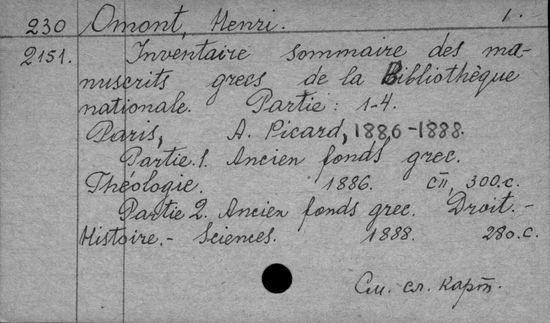 230 Omont, Henri. 1.
2151. Inventaire sommaire des ma-
nuscrits grecs de la Bibliothèque
nationale. Partie: 1-4.
Paris, A. Picard, 1886-1888.
Partie 1. Ancien fonds grec.
Théologie. 1886. CII, 300.c.
Partie 2. Ancien fonds grec. Droit.-
Histoire.- Sciences. 1888. 280.c.
См. сл. карт.